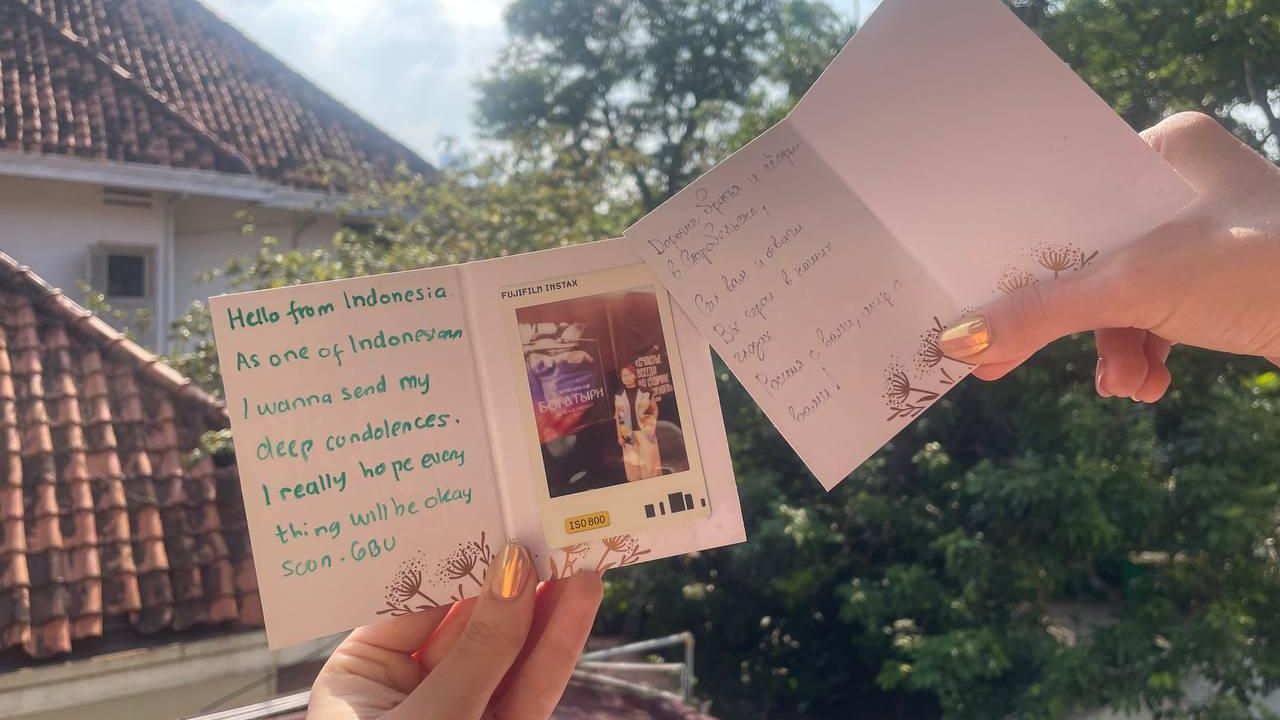 Hello from Indonesia.
As one of Indonesiann
I wanna send my
deep condolences.
I really hope every
thing will be okay
soon. GBU
FUJIFILM INSTAX
БОГАТЫРИ
СЧАСТЬЕ
ВСЕГДА
НА СТОРОНЕ
ISO 800
Дорогие братья и сёстры
в Старобельске,
Сил вам и отваги
Вы герои в наших
глазах
Россия с вами, мир с
вами!